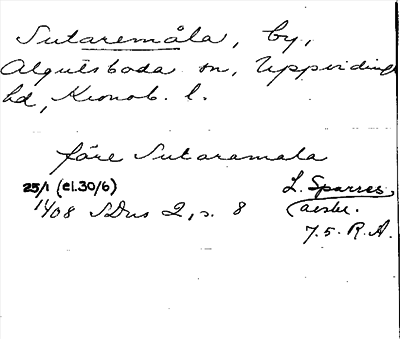 Sutaremåla, by,
Algutsboda sn, Uppvidinge
hd, Kronob. l.
före Sutaramala
25/1 (el. 30/6) L. Sparres
1408 SDns 2, s. 8
7.5. R.A.